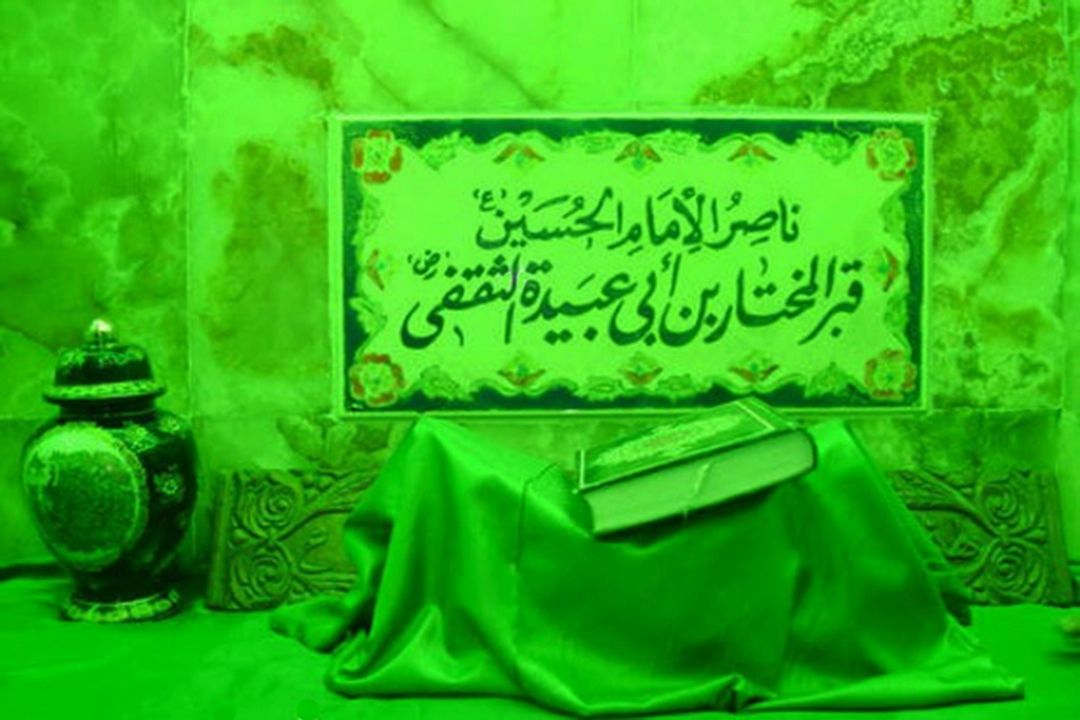 ناصِرُ الإِمَامِ الحُسَين ع
قبر المختار بن أبي عبيدة الثقفي رض